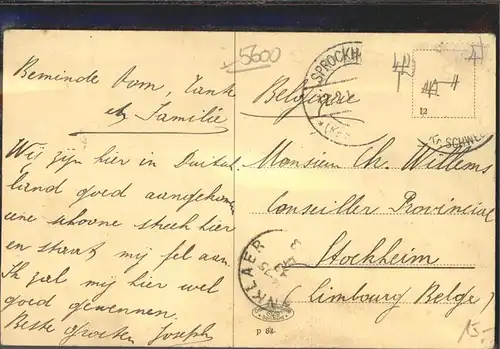 5600
Beminde Oom, Tante
en Familie
Wij zijn hier in Duitsch
land goed aangekomen
eene schoone streek hier
en staat mij fel aan
Ik zal mij hier wel
goed gewennen.
Beste groeten Joseph
SPROCKH
KR. SCHWEL
12
Belgique
Monsieur Ch. Willems
Conseiller Provincial
Stockheim
(Limbourg Belge)
p 84
15.-